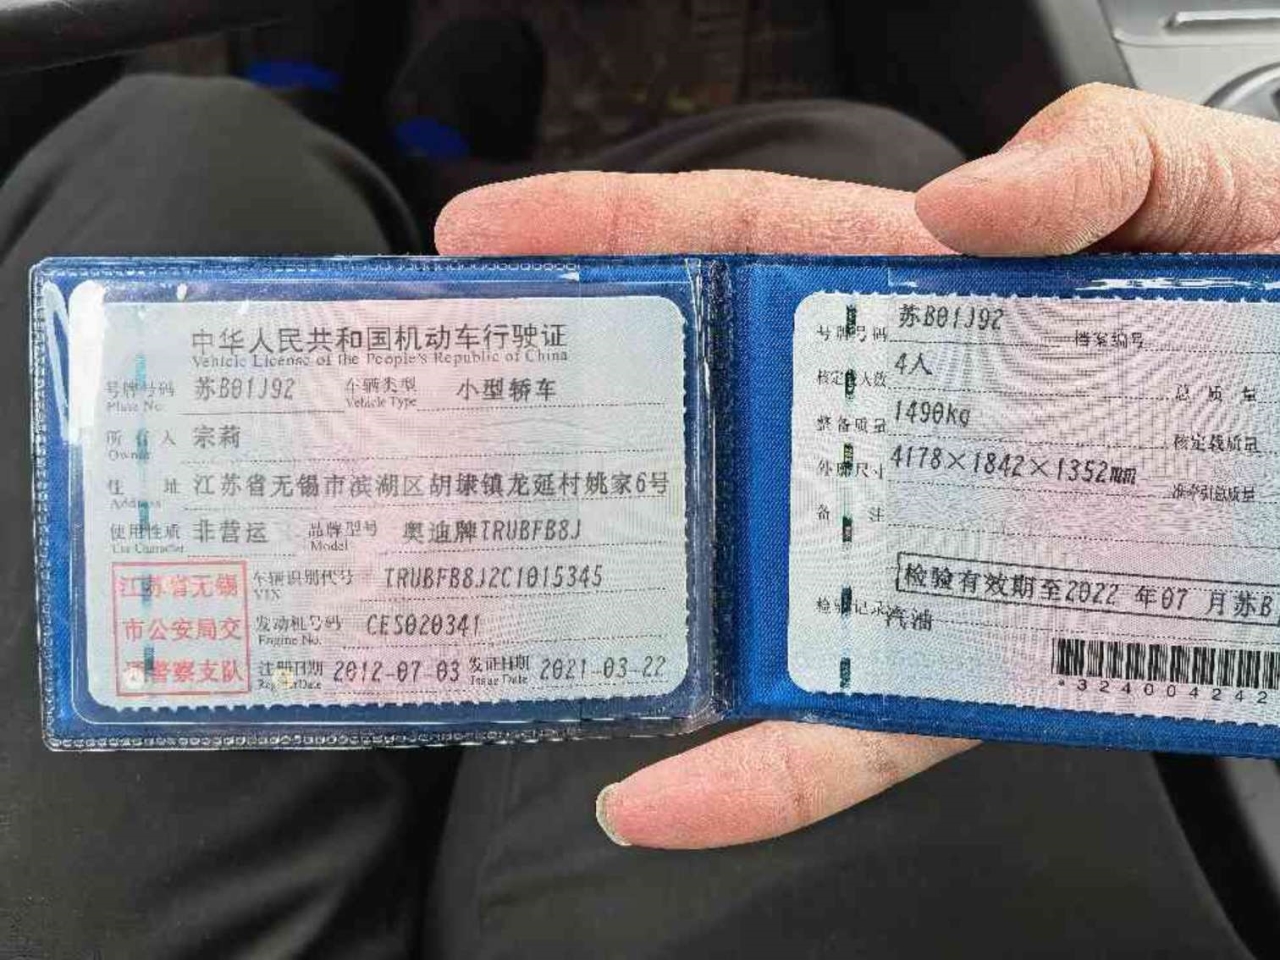 中华人民共和国机动车行驶证
Vehicle License of the People's Republic of China
号牌号码 苏B01J92 车辆类型 小型轿车
Plate No. Vehicle Type
所有人 宗莉
Owner
住址 江苏省无锡市滨湖区胡埭镇龙延村姚家6号
Address
使用性质 非营运 品牌型号 奥迪牌TRUBFB8J
Use Character Model
江苏省无锡
市公安局交
通警察支队
车辆识别代号 TRUBFB8J2C1015345
VIN
发动机号码 CES020341
Engine No.
注册日期 2012-07-03 发证日期 2021-03-22
Register Date Issue Date
号牌号码 苏B01J92 档案编号
核定载人数 4人 总质量
整备质量 1490kg 核定载质量
外廓尺寸 4178×1842×1352mm 准牵引总质量
备注
检验有效期至2022年07月苏B
检验记录 汽油
*324004242